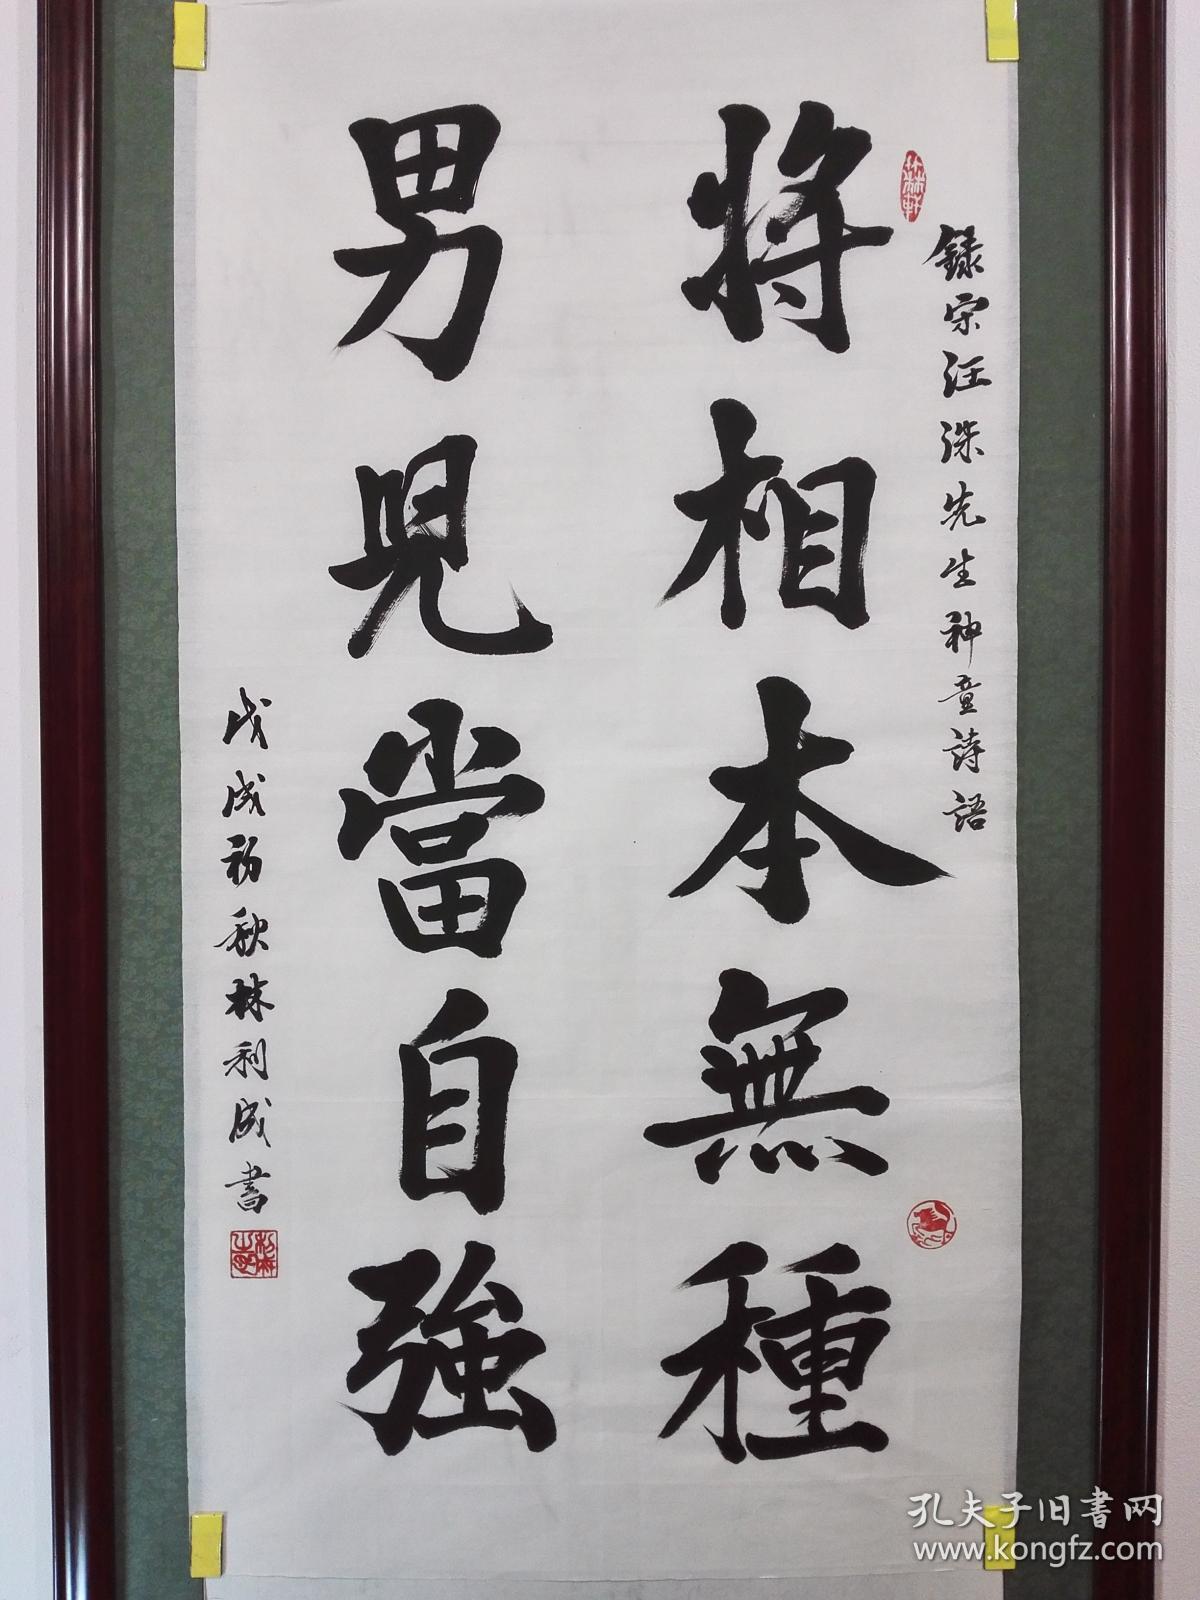 録宋汪洙先生神童詩語
将相本無種
男児當自強
戊戌初秋林利成書
孔夫子旧書网
www.kongfz.com